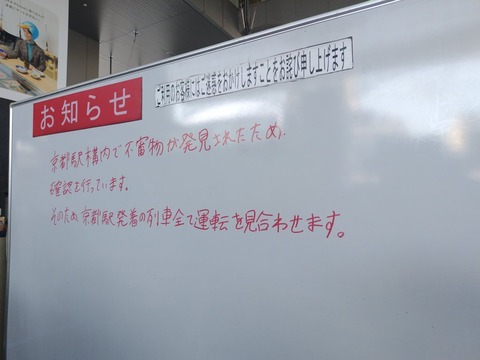 お知らせ
ご利用のお客様にはご迷惑をおかけしますことをお詫び申し上げます
京都駅構内で不審物が発見されたため、
確認を行っています。
そのため京都駅発着の列車全て運転を見合わせます。